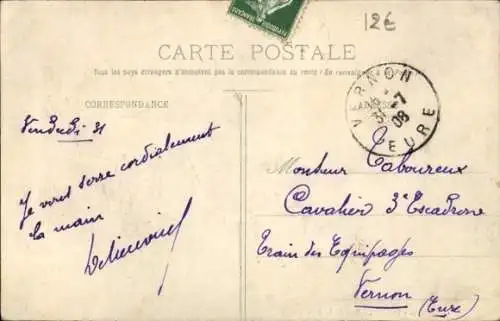 12€
CARTE POSTALE
Tous les pays étrangers n'acceptent pas la correspondance au recto
CORRESPONDANCE
VERNON
31-7
08
EURE
Vendredi 31
Je vous serre cordialement
la main
Monsieur Taboureux
Cavalier 3e Escadrone
Train des Equipages
Vernon
(Eure)